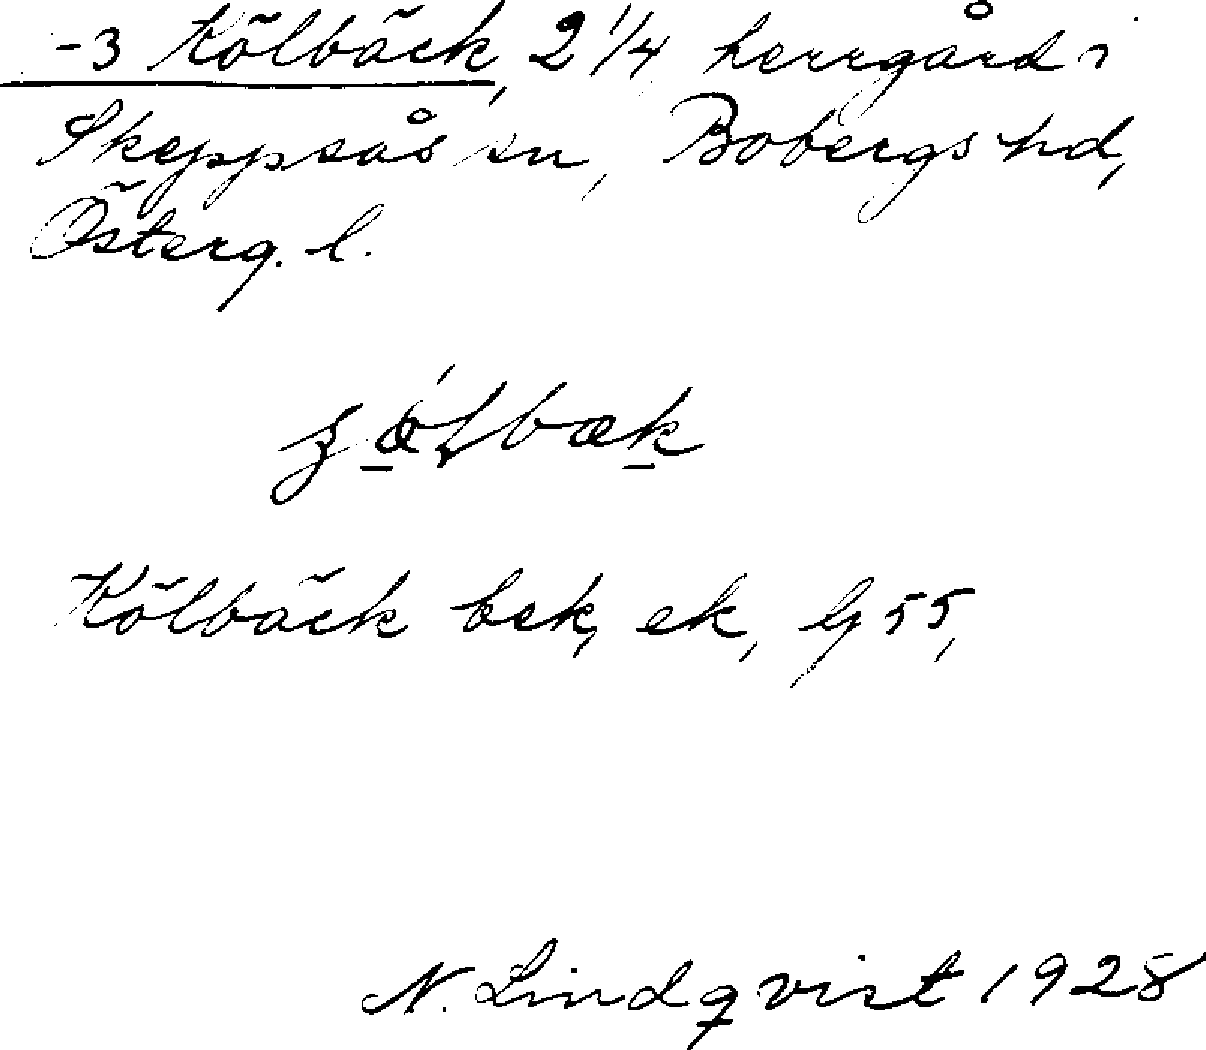 -3 Kölbäck, 2 1/4 herrgård i
Skeppsås sn, Bobergs hd,
Österg. l.
Kölbäck bek, ek, G 55,
N. Lindqvist 1928